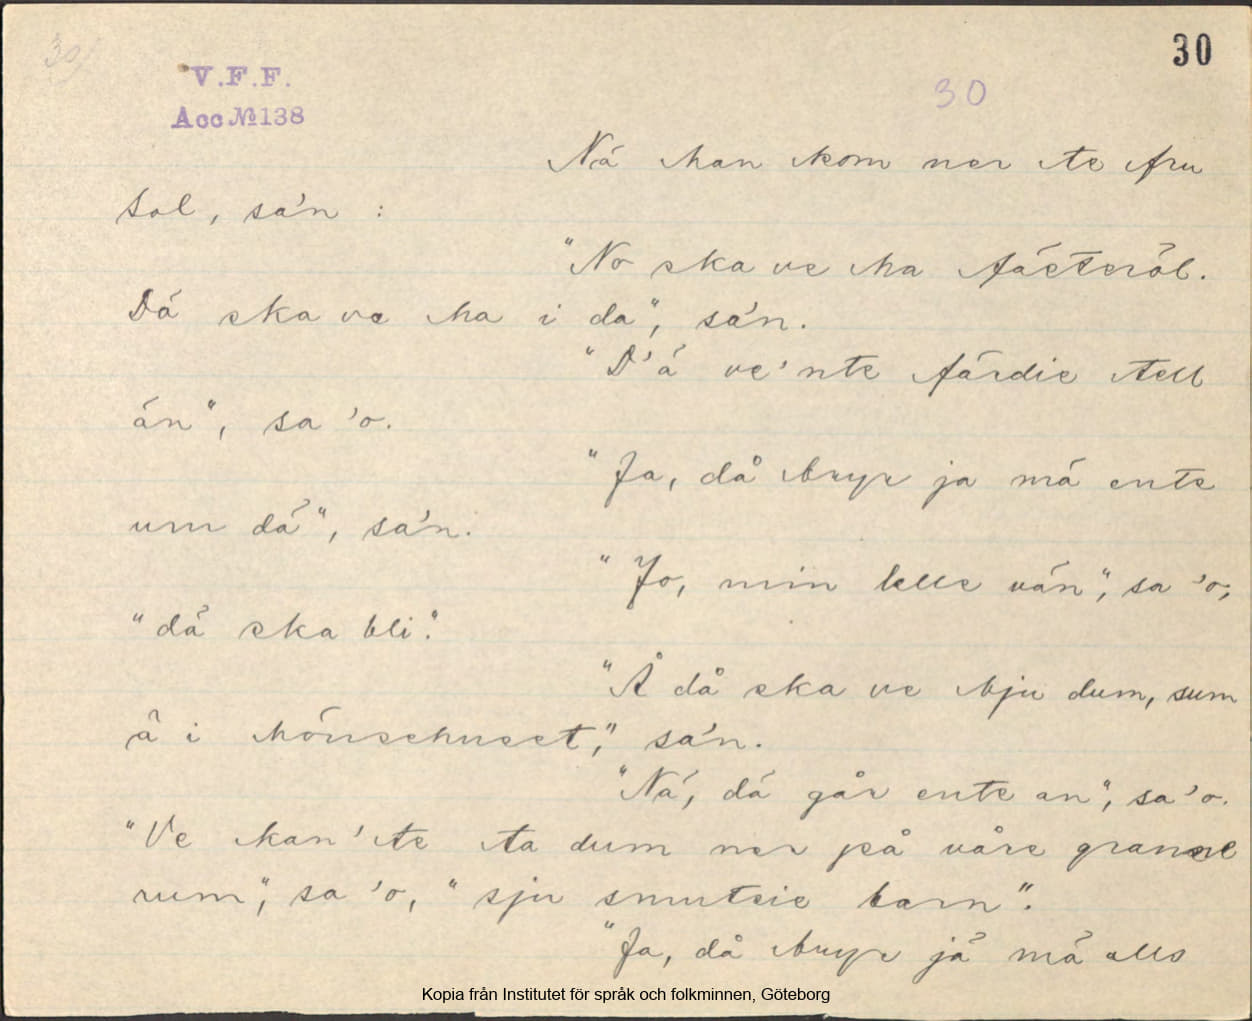 30
30
V.F.F.
30
Acc №138
Nä han kom ner te fru
Sol, sa'n :
"No ska ve ha fästeröl.
Dä ska ve ha i da", sa'n.
"D'ä ve'nte färdie tell
än", sa 'o.
"Ja, då bryr ja mä ente
um dä", sa'n.
"Jo, min lelle vän", sa 'o,
"dä ska bli".
"Å då ska ve bju dum, sum
ä i hönsehuset," sa'n.
"Nä, dä går ente an", sa 'o.
"Ve kan'te ta dum ner på våre granne
rum", sa 'o, "sju smutsie barn".
"Ja, då bryr jä mä alls
Kopia från Institutet för språk och folkminnen, Göteborg